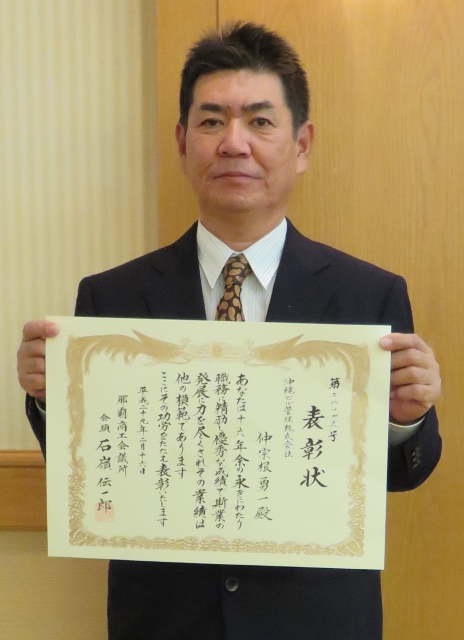 表彰状
沖縄ビル管理株式会社
仲宗根勇一殿
あなたは十六年余の永きにわたり
職務に精励優秀な成績で斯業の
発展に力を尽くされその業績は
他の模範であります
ここにその功労をたたえ表彰いたします
平成二十九年二月十六日
那覇商工会議所
会頭 石嶺伝一郎